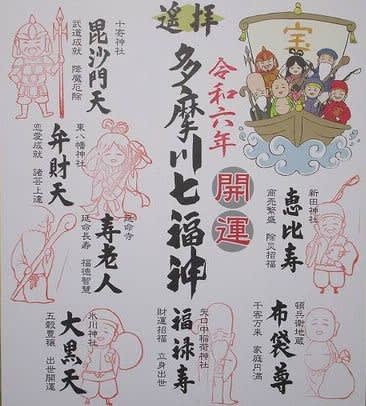 遥拝
多摩川七福神
令和六年
開運
宝
新田神社
商売繁盛 除災招福
恵比寿
頓兵衛地蔵
千客万来 家庭円満
布袋尊
矢口中稲荷神社
財運招福 立身出世
福禄寿
十寄神社
武道成就 降魔厄除
毘沙門天
東八幡神社
恋愛成就 諸芸上達
弁財天
延命寺
延命長寿 福徳智慧
寿老人
氷川神社
五穀豊穣 出世開運
大黒天